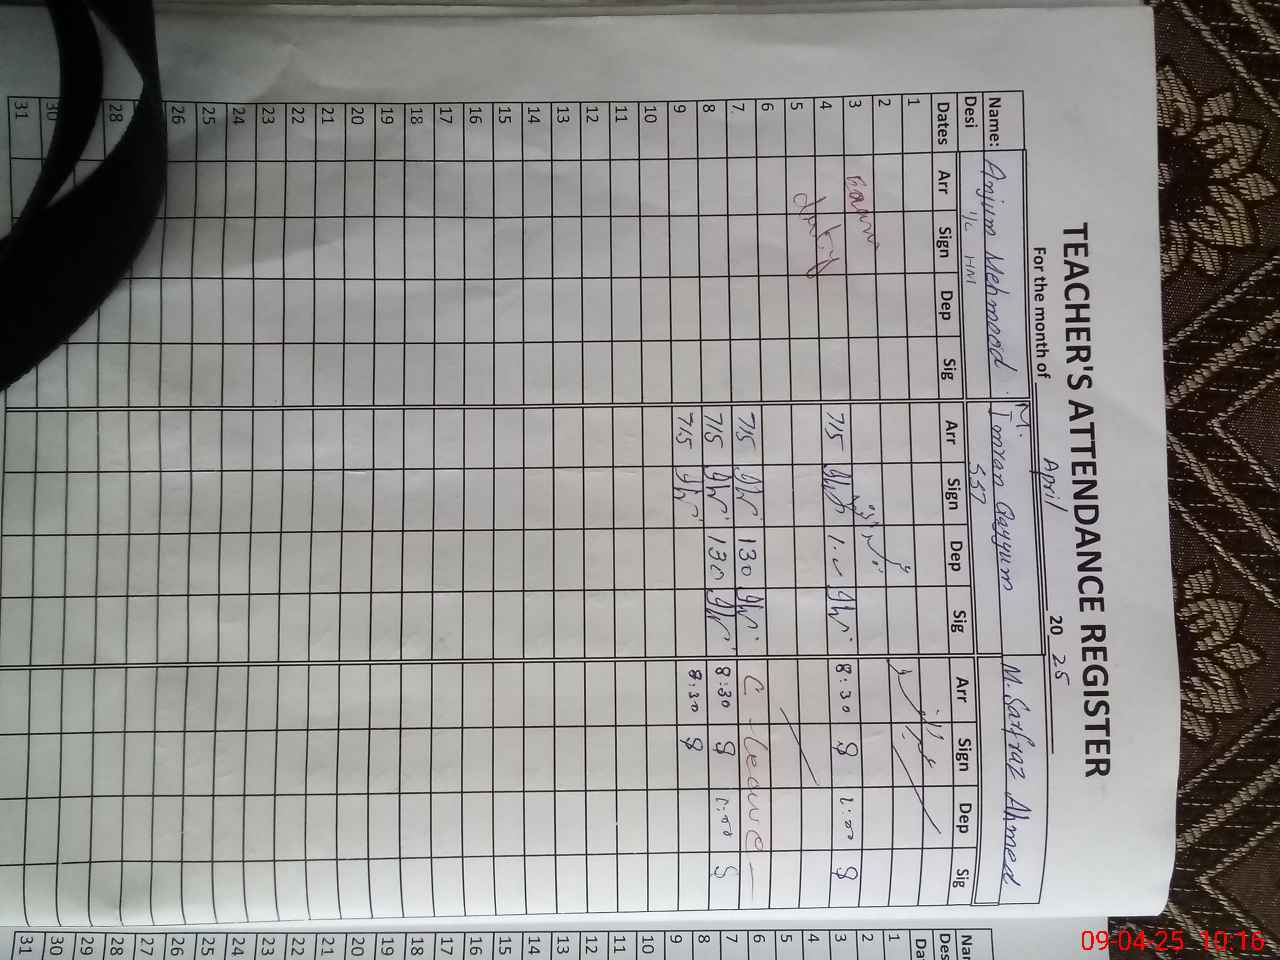 TEACHER'S ATTENDANCE REGISTER
For the month of April 2025
Name: Anjum Mehmood M. Imran Qayyum M. Sarfraz Ahmed
Desi I/C HM
Dates Arr Sign Dep Sig Arr Sign Dep Sig Arr Sign Dep Sig
1
2
3
4 715 8:30 1:00
5 duty
6
7 715 130 C. leave
8 715 130 8:30 1:00
9 715 8:30
10
11
12
13
14
15
16
17
18
19
20
21
22
23
24
25
26
28
30
31
Nar
Des
Da
1
2
3
4
5
6
7
8
9
10
11
12
13
14
15
16
17
18
19
20
21
22
23
24
25
26
27
28
29
30
31
09-04-25 10:16